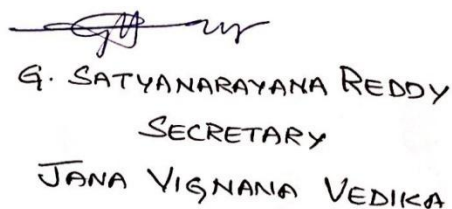 G. SATYANARAYANA REDDY
SECRETARY
JANA VIGNANA VEDIKA